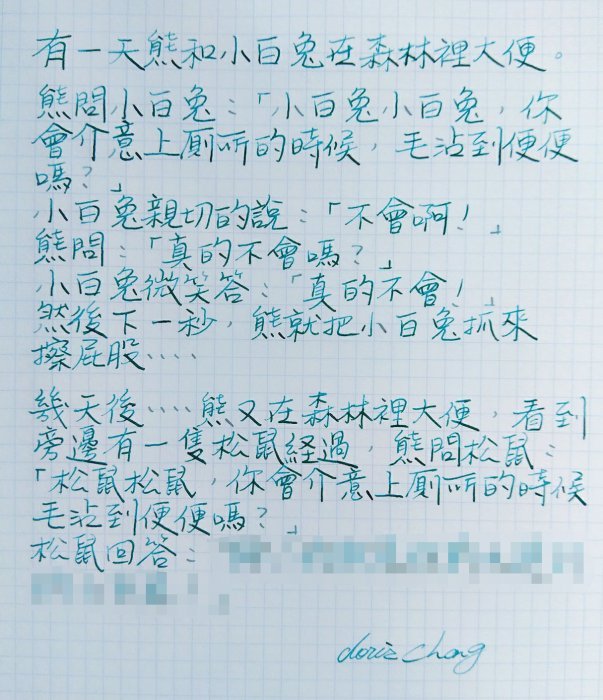 有一天熊和小白兔在森林裡大便。
熊問小白兔：「小白兔小白兔，你
會介意上厠所的時候，毛沾到便便
嗎？」
小白兔親切的說：「不會啊！」
熊問：「真的不會嗎？」
小白兔微笑答：「真的不會！」
然後下一秒，熊就把小白兔抓來
擦屁股....
幾天後....熊又在森林裡大便，看到
旁邊有一隻松鼠経過，熊問松鼠：
「松鼠松鼠，你會介意上厠所的時候
毛沾到便便嗎？」
松鼠回答：
doris chang